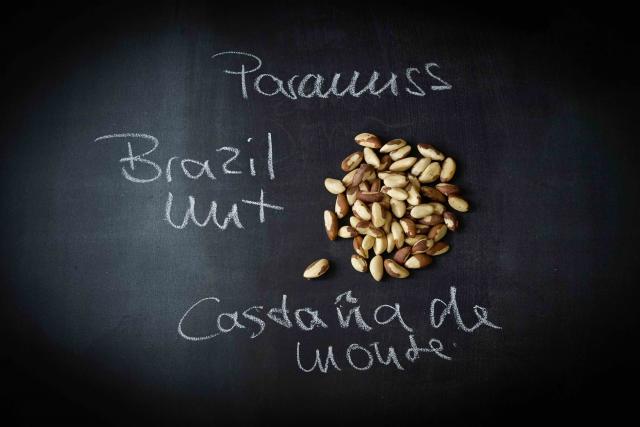 Paranuss
Brazil
nut
Castaña de
monte.